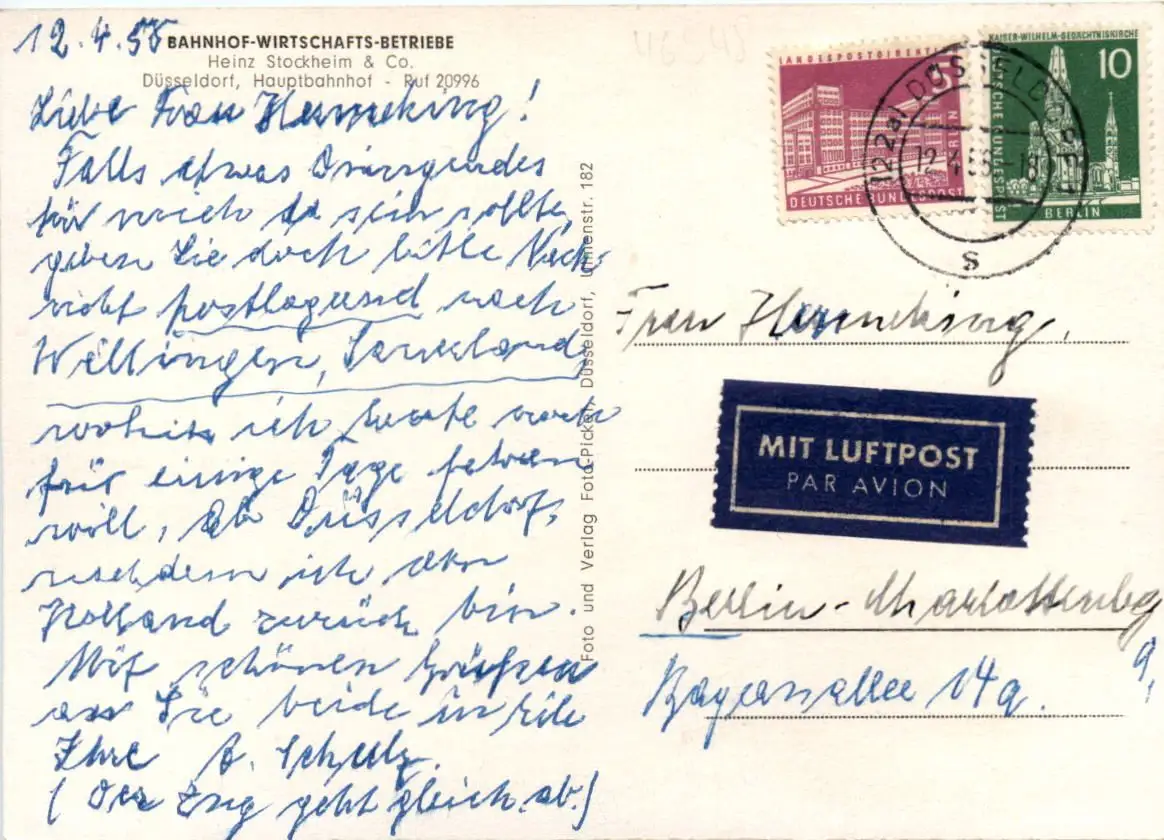 12.4.56
BAHNHOF-WIRTSCHAFTS-BETRIEBE
Heinz Stockheim & Co.
Düsseldorf, Hauptbahnhof - Ruf 20996
Liebe Frau Henneking!
Falls etwas Dringendes
für mich da sein sollte,
geben Sie doch bitte Nach-
richt postlagernd nach
Willingen, Sauerland,
wohin ich heute noch
für einige Tage fahren
will, ab Düsseldorf,
nachdem ich aus
Holland zurück bin.
Mit schönen Grüßen
an Sie beide in Eile
Ihre A. Schulz.
(Der Zug geht gleich ab.)
Foto und Verlag Foto-Picker, Düsseldorf, Ulmenstr. 182
LANDESPOSTDIREKTION
5
BERLIN
DEUTSCHE BUNDESPOST
KAISER-WILHELM-GEDÄCHTNISKIRCHE
10
DEUTSCHE BUNDESPOST
BERLIN
(22a) DÜSSELDORF
12.4.56-18
s
Frau Henneking,
MIT LUFTPOST
PAR AVION
Berlin-Charlottenbg
9,
Bayernallee 14a.